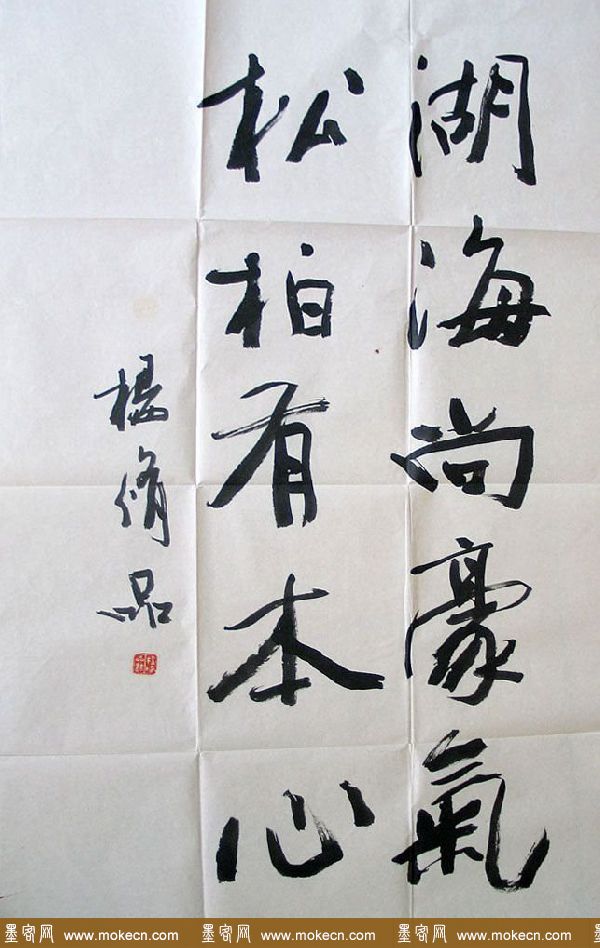 湖海尚豪氣
松柏有本心
楊脩品
墨客网 www.mokecn.com 墨客网 www.mokecn.com 墨客网 www.mokecn.com